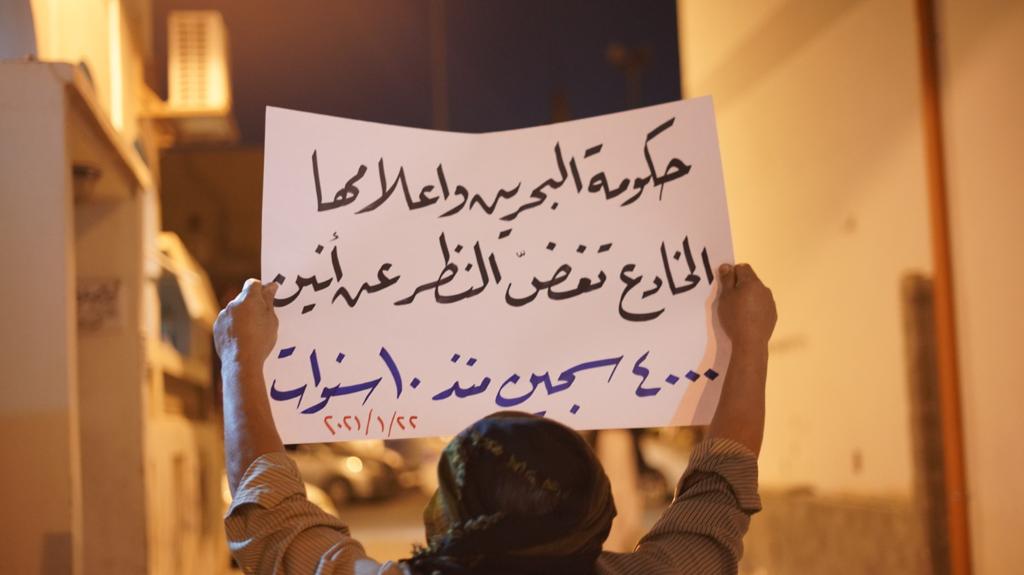 حكومة البحرين واعلامها
الخادع تغضّ النظر عن أنين
٤٠٠٠ سجين منذ ١٠ سنوات
٢٠٢١/١/٢٢